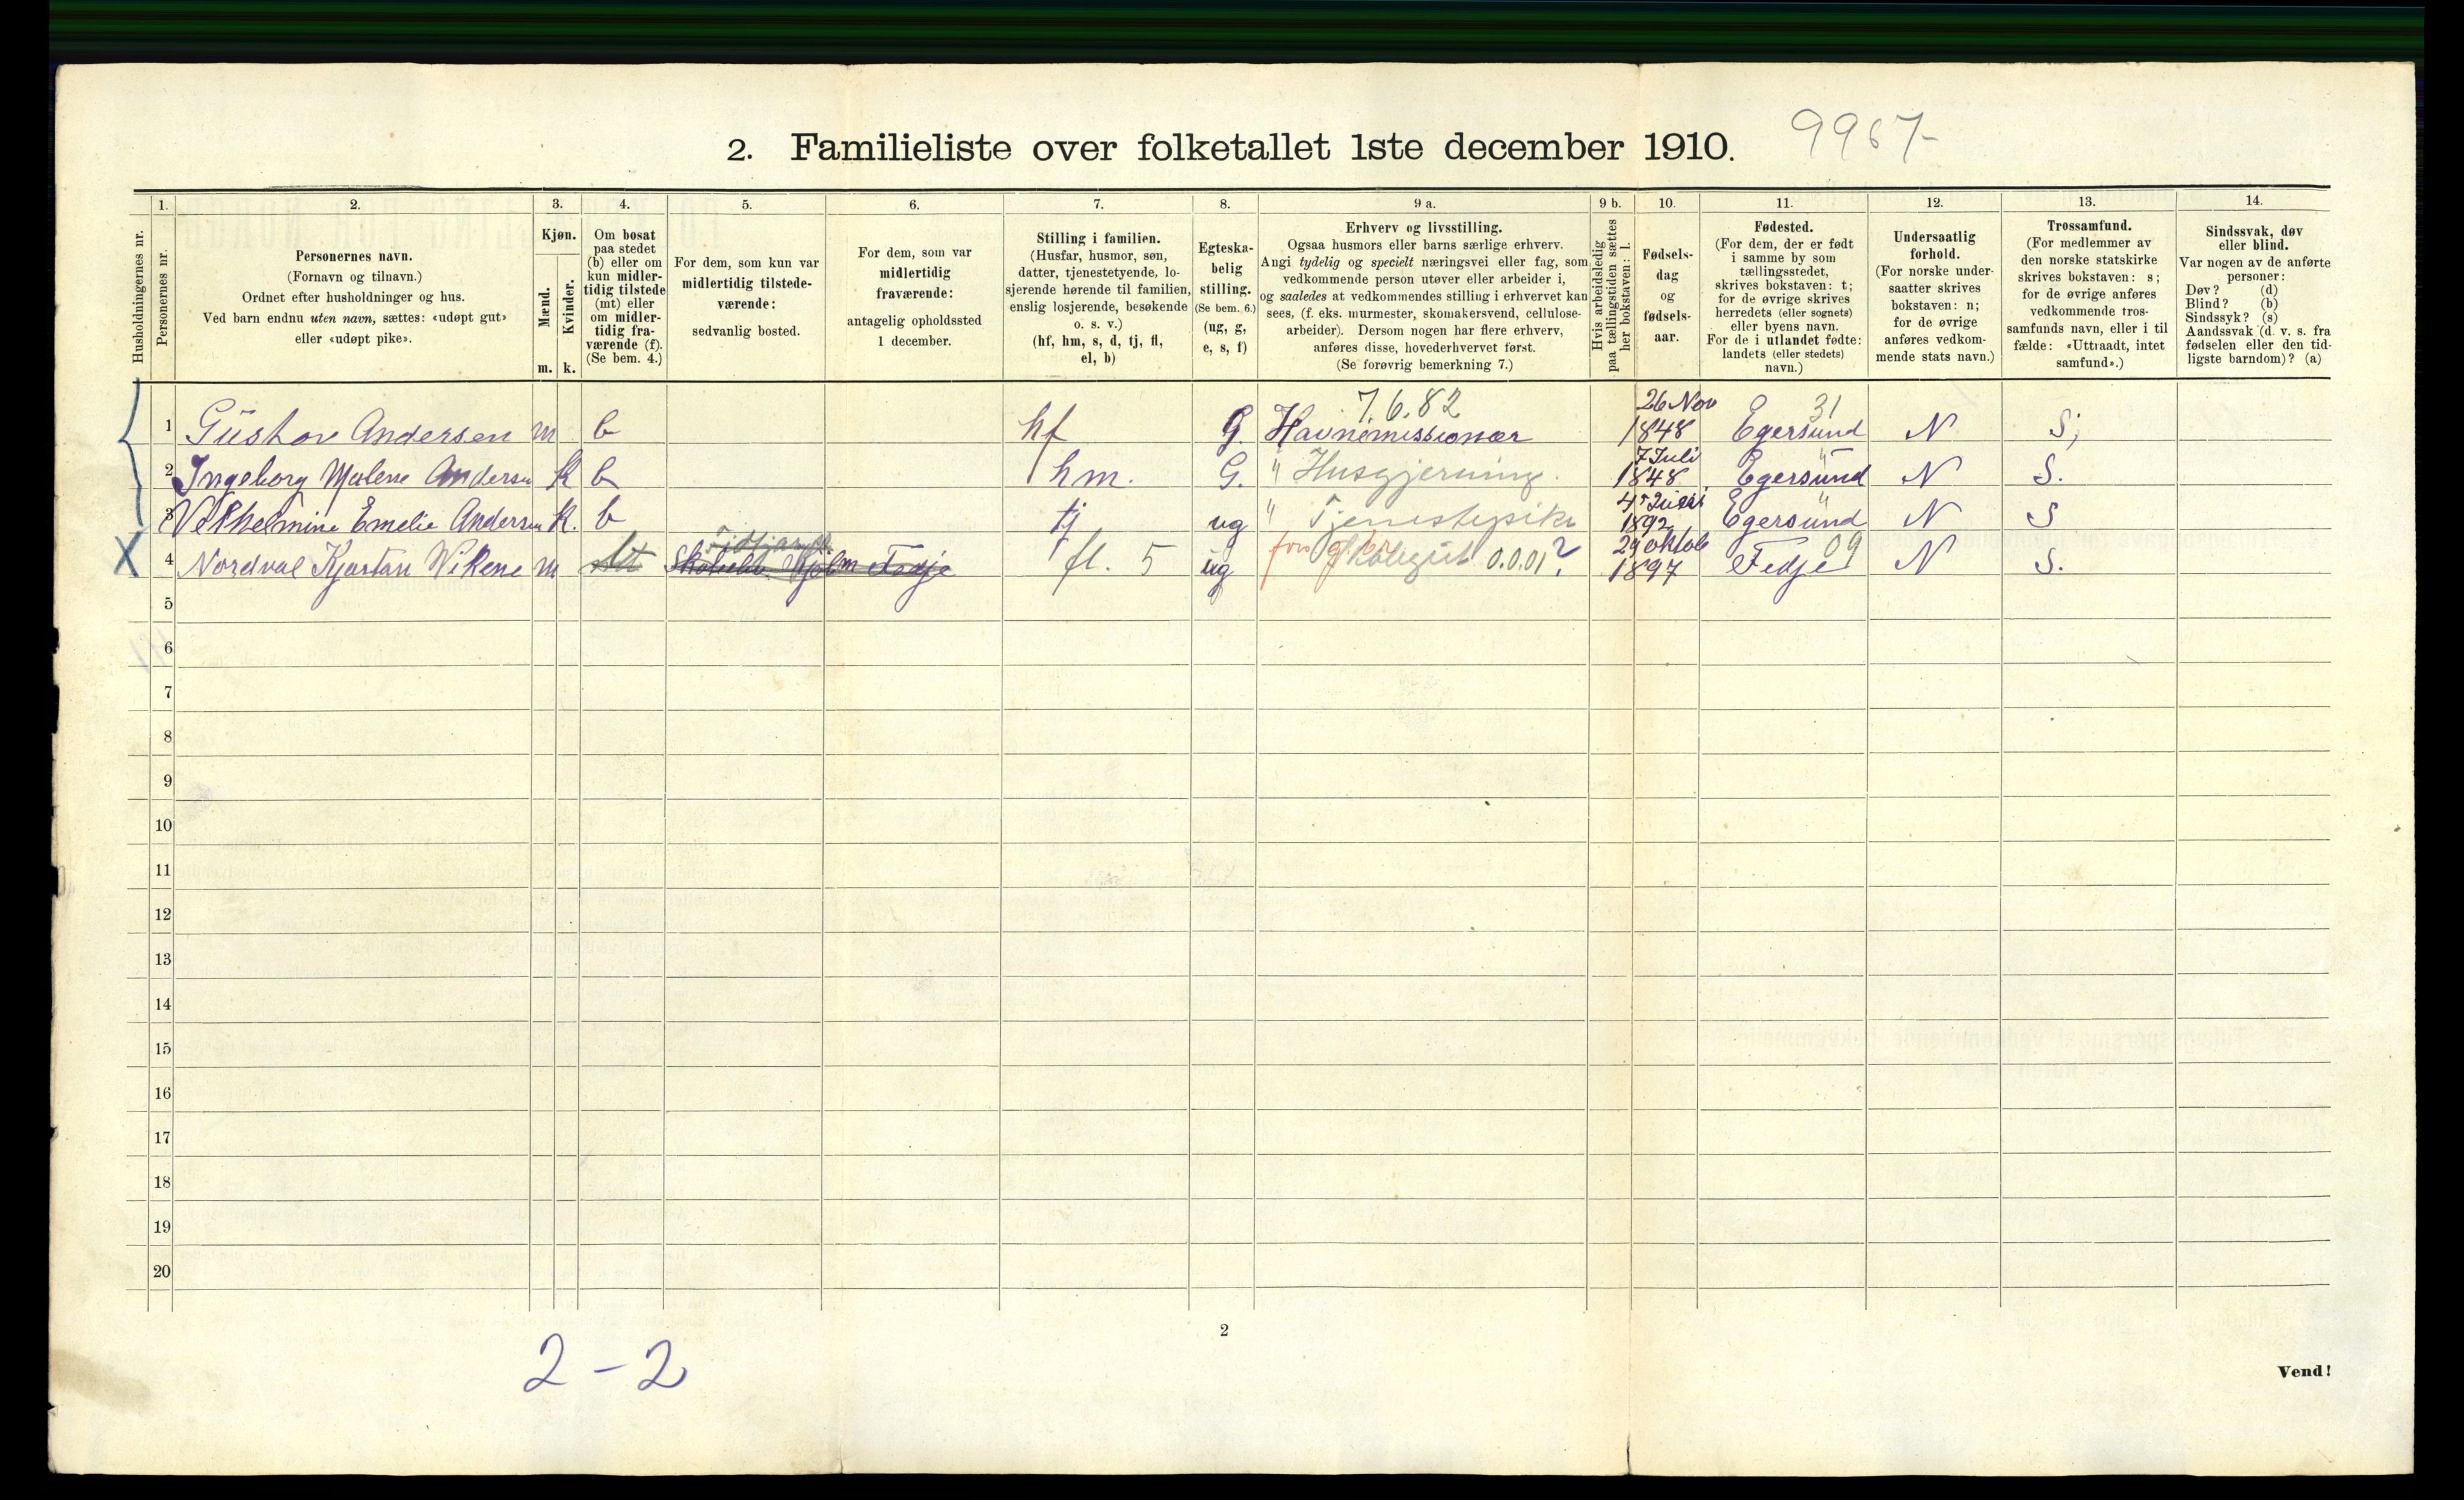 9967-
2. Familieliste over folketallet 1ste december 1910.
1. 2. 3. 4. 5. 6. 7. 8. 9 a. 9 b. 10. 11. 12. 13. 14.
Husholdningernes nr.
Personernes nr.
Personernes navn.
(Fornavn og tilnavn.)
Ordnet efter husholdninger og hus.
Ved barn endnu uten navn, sættes: «udøpt gut»
eller «udøpt pike».
Kjøn.
Mænd.
Kvinder.
m. k.
Om bosat
paa stedet
(b) eller om
kun midler-
tidig tilstede
(mt) eller
om midler-
tidig fra-
værende (f).
(Se bem. 4.)
For dem, som kun var
midlertidig tilstede-
værende:
sedvanlig bosted.
For dem, som var
midlertidig
fraværende:
antagelig opholdssted
1 december.
Stilling i familien.
(Husfar, husmor, søn,
datter, tjenestetyende, lo-
sjerende hørende til familien,
enslig losjerende, besøkende
o. s. v.)
(hf, hm, s, d, tj, fl,
el, b)
Egteska-
belig
stilling.
(Se bem. 6.)
(ug, g,
e, s, f)
Erhverv og livsstilling.
Ogsaa husmors eller barns særlige erhverv.
Angi tydelig og specielt næringsvei eller fag, som
vedkommende person utøver eller arbeider i,
og saaledes at vedkommendes stilling i erhvervet kan
sees, (f. eks. murmester, skomakersvend, cellulose-
arbeider). Dersom nogen har flere erhverv,
anføres disse, hovederhvervet først.
(Se forøvrig bemerkning 7.)
Hvis arbeidsledig
paa tællingstiden sættes
her bokstaven: l.
Fødsels-
dag
og
fødsels-
aar.
Fødested.
(For dem, der er født
i samme by som
tællingsstedet,
skrives bokstaven: t;
for de øvrige skrives
herredets (eller sognets)
eller byens navn.
For de i utlandet fødte:
landets (eller stedets)
navn.)
Undersaatlig
forhold.
(For norske under-
saatter skrives
bokstaven: n;
for de øvrige
anføres vedkom-
mende stats navn.)
Trossamfund.
(For medlemmer av
den norske statskirke
skrives bokstaven: s;
for de øvrige anføres
vedkommende tros-
samfunds navn, eller i til
fælde: «Uttraadt, intet
samfund».)
Sindssvak, døv
eller blind.
Var nogen av de anførte
personer:
Døv? (d)
Blind? (b)
Sindssyk? (s)
Aandssvak (d. v. s. fra
fødselen eller den tid-
ligste barndom)? (a)
7.6.82 26 Nov 31
1 Gustav Andersen m b hf G. Havnemissionær 1848 Egersund N S;
7 Juli "
2 Ingeborg Malene Andersen K b hm. G. " Husgjerning. 1848 Egersund N S.
"
3 Vilhelmine Emelie Andersen K. b tj ug " Tjenestepike 1892 Egersund N S
29 oktob 09
X 4 Nordval Kjartan Vikene m fl. 5 ug Skolegut 0.0.01 ? 1897 Fedje N S.
5
6
7
8
9
10
11
12
13
14
15
16
17
18
19
20
2
2-2
Vend!